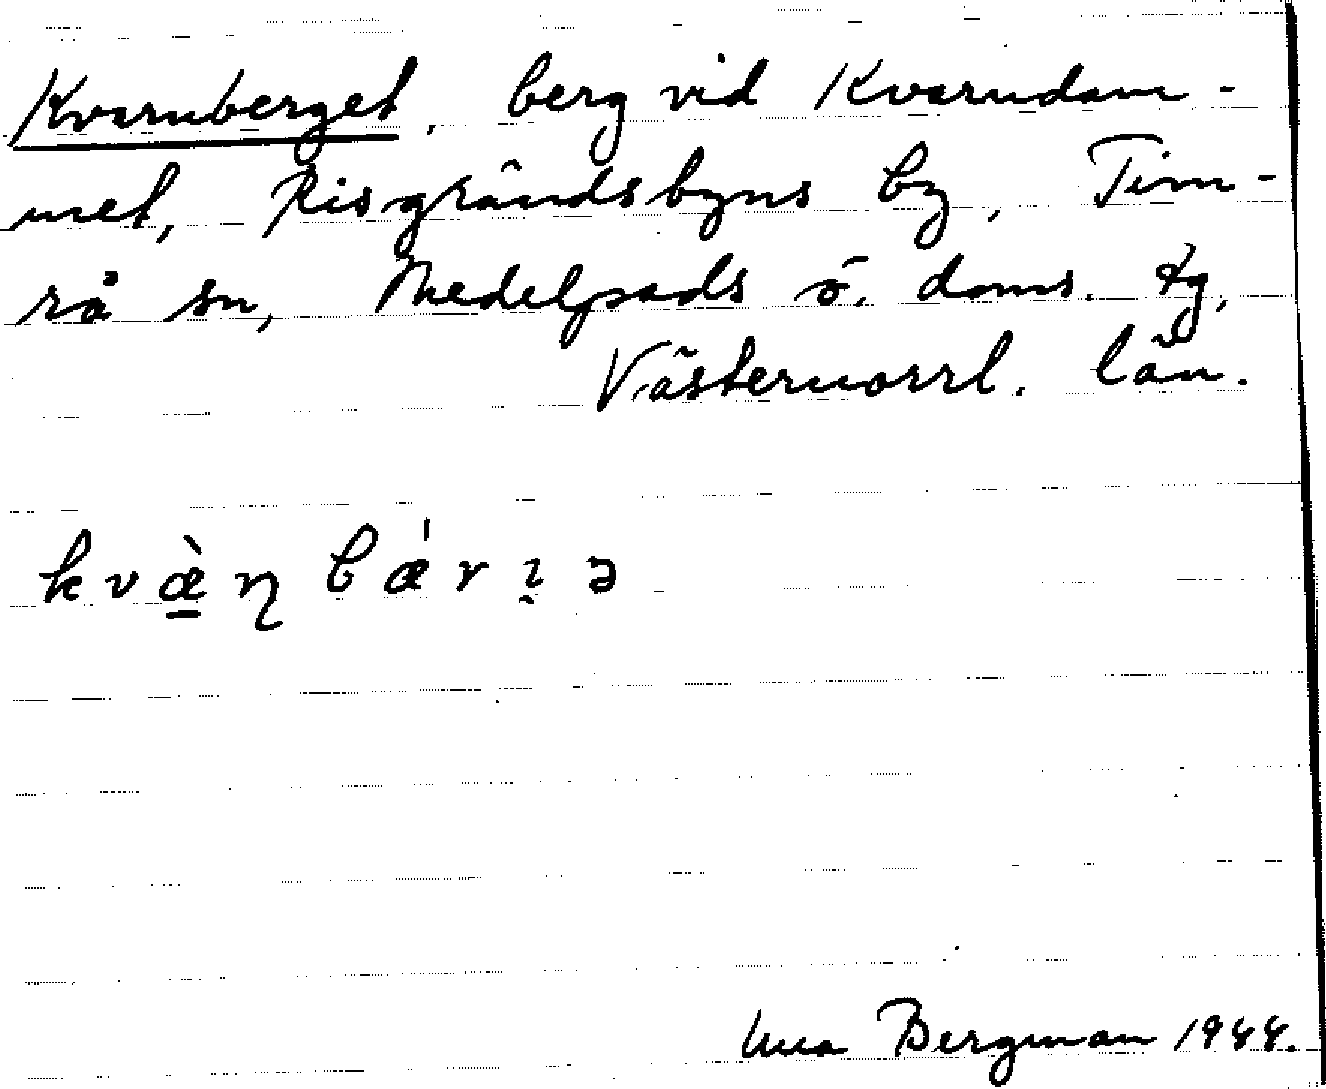 Kvarnberget, berg vid Kvarndam-
met, Risgrändsbyns by, Tim-
rå sn, Medelpads ö. doms. tg,
Västernorrl. län.
kvæ̱̀ɳbǽrı̰ə
Una Bergman 1944.